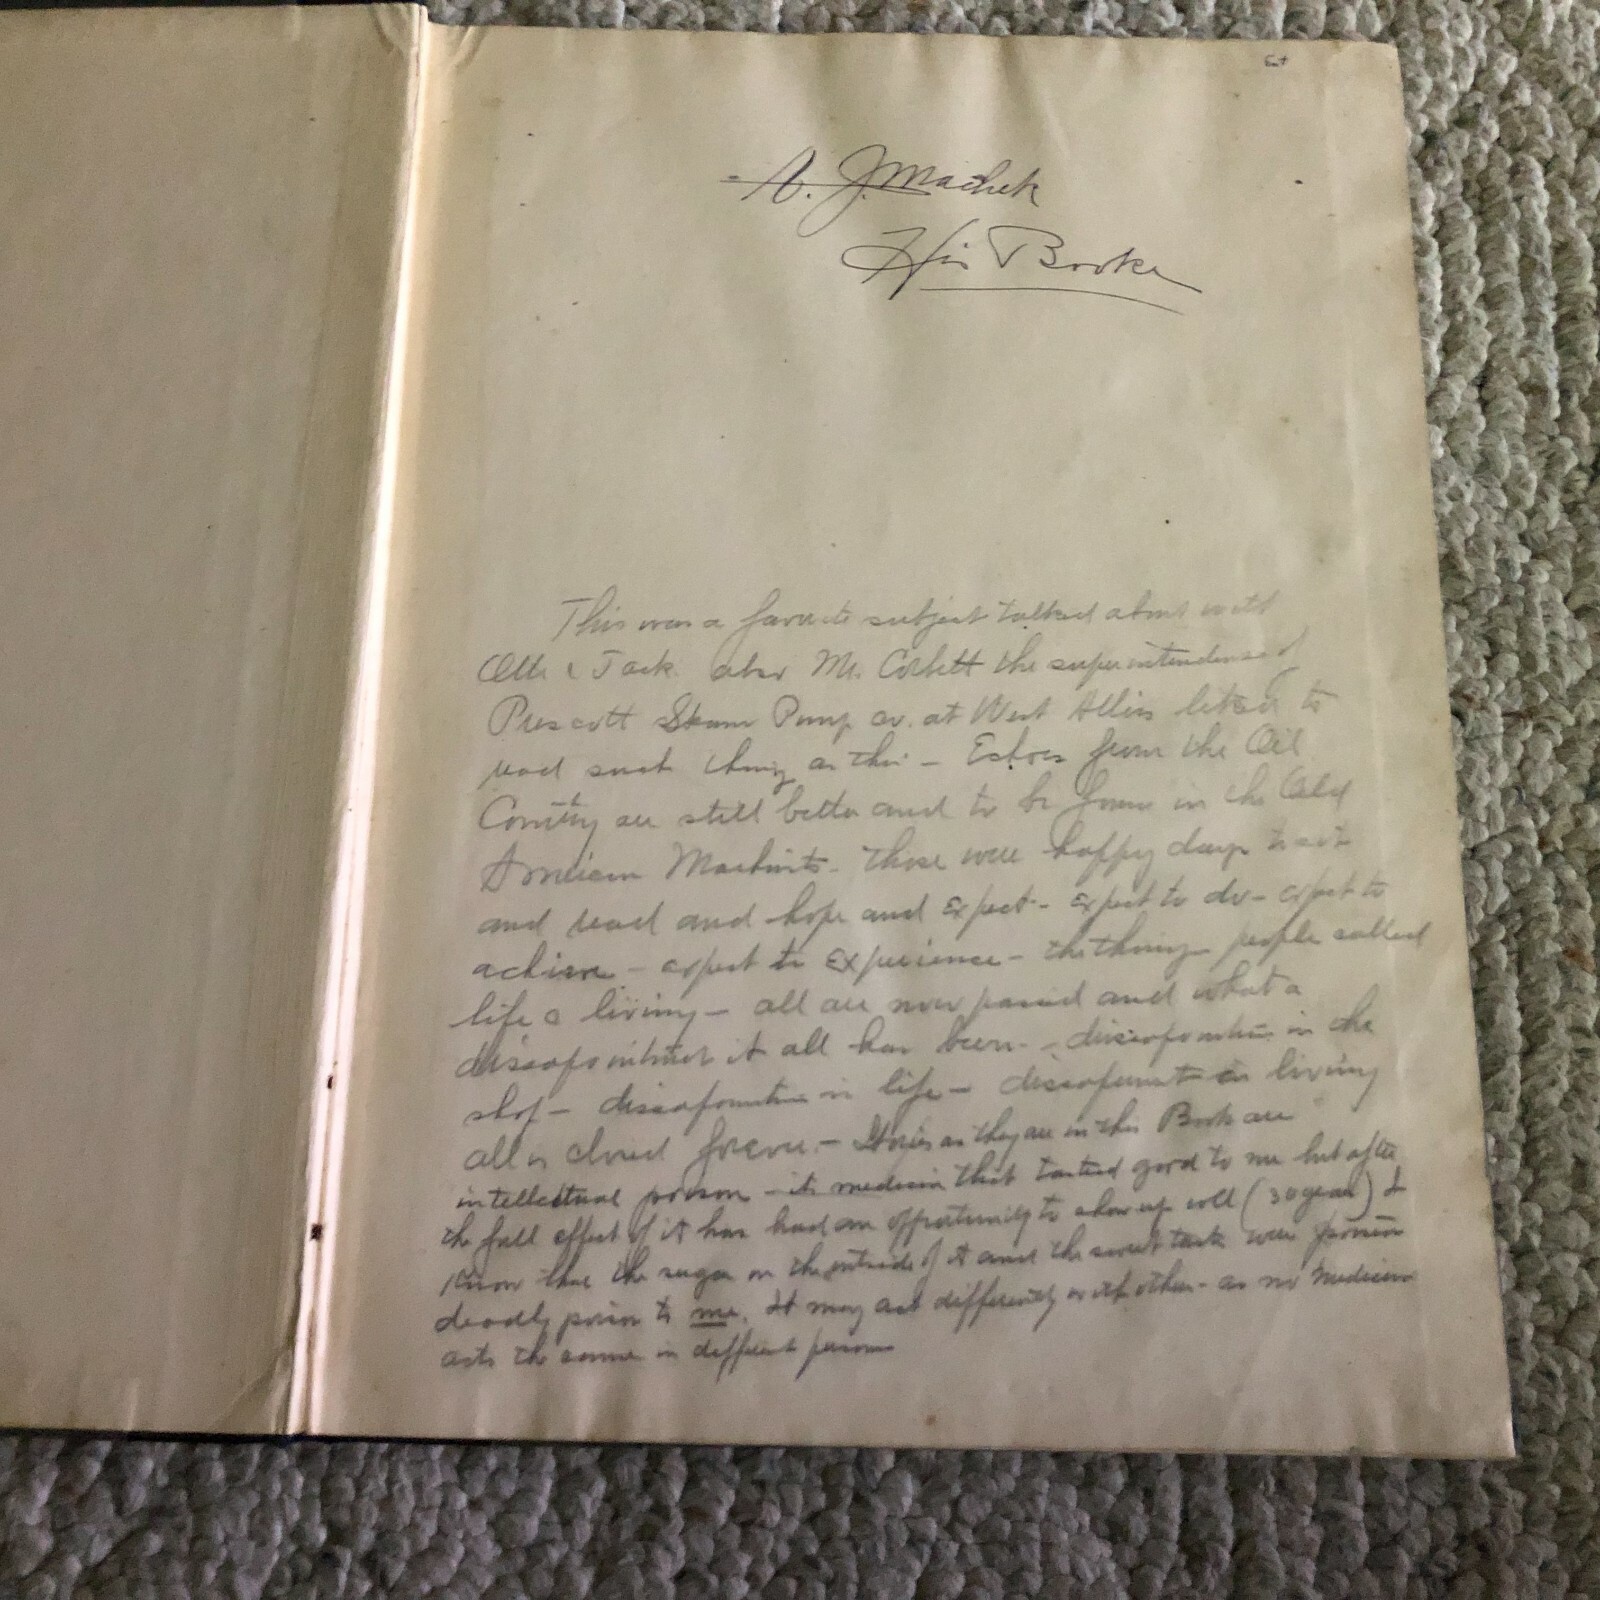 A. J. Machek
His Booke
This was a favorite subject talked about with
Otto & Jack also Mr. Corbett the superintendent of
Prescott Steam Pump co. at West Allis liked to
read such things as this — from the Oil
Country are still better and to be found in the Old
American Machinists. Those were happy days to sit
and read and hope and expect — expect to do — expect to
achieve — expect to experience — the things people called
life & living — all are now passed and what a
disappointment it all has been — disappointment in the
shop — disappointment in life — disappointment in living
all is closed forever — Stories as they are in this Book are
intellectual poison — its medicine that tasted good to me but after
the full effect of it has had an opportunity to show up well (30 years) I
know that the sugar on the outside of it and the sweet taste were poison
deadly poison to me. It may act differently with others — as no medicine
acts the same in different persons